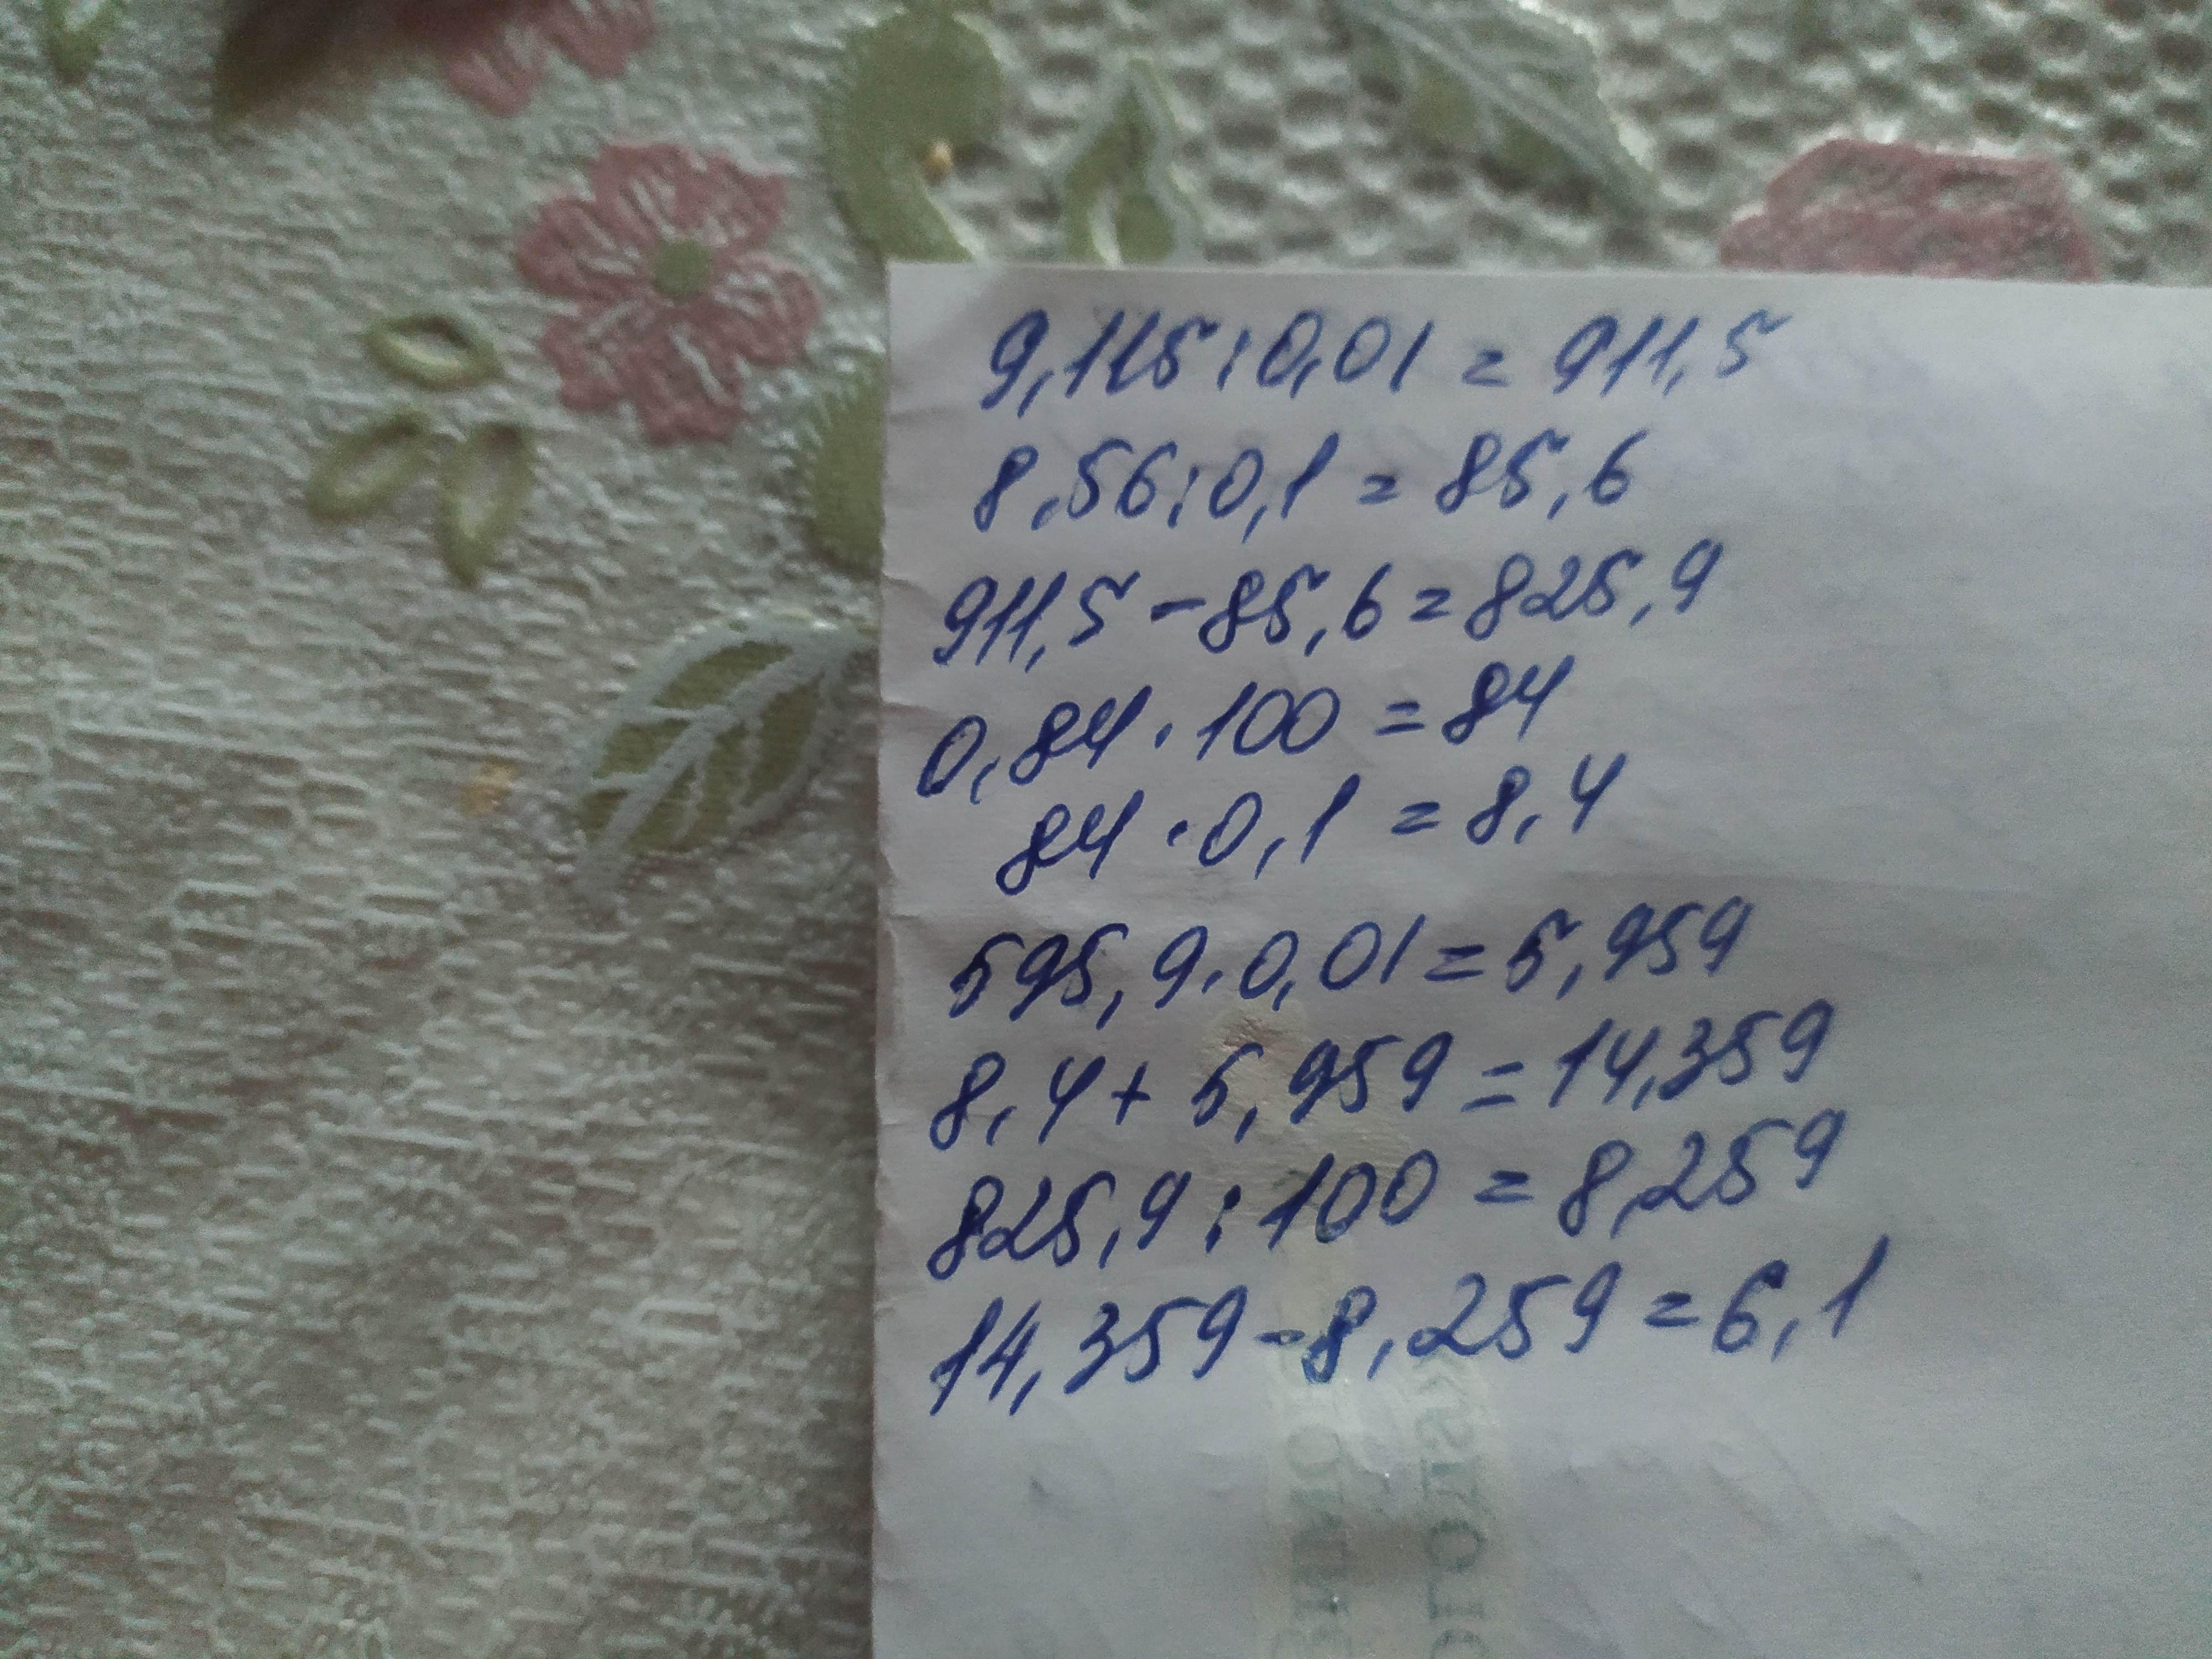 9,115:0,01=911,5
8,56:0,1=85,6
911,5-85,6=825,9
0,84·100=84
84·0,1=8,4
595,9·0,01=5,959
8,4+5,959=14,359
825,9:100=8,259
14,359-8,259=6,1